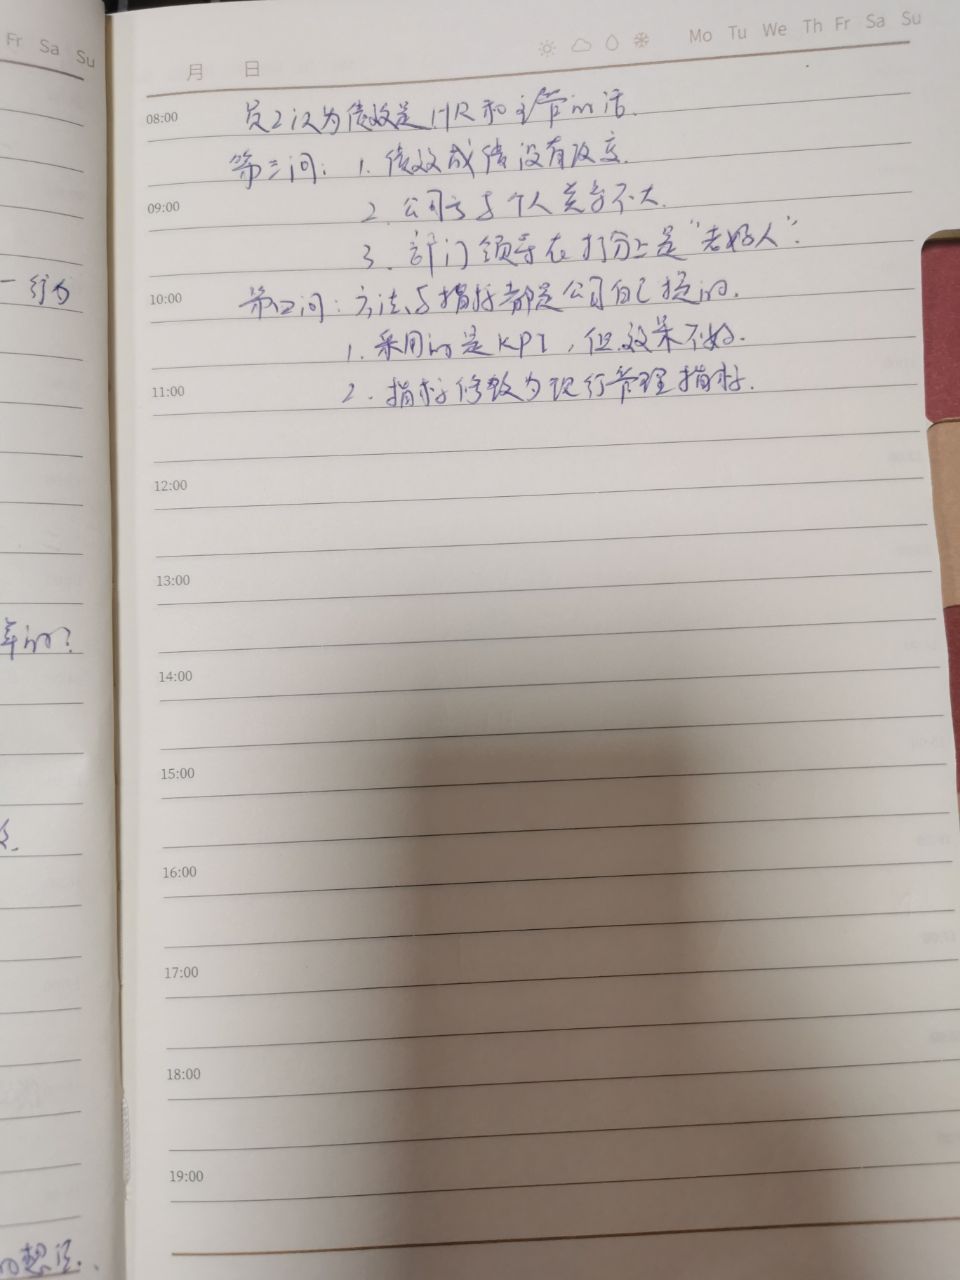 Fr Sa Su
一行为
的?
的想法.
月 日 Mo Tu We Th Fr Sa Su
08:00 员工认为绩效是HR和主管的活.
第三问: 1. 绩效成绩没有改变.
09:00 2. 公司 与个人关系不大.
3. 部门领导在打分上是“老好人”.
10:00 第四问: 方法与指标都是公司自己提的.
1. 采用的是KPI, 但效果不好.
11:00 2. 指标修改为现行管理指标.
12:00
13:00
14:00
15:00
16:00
17:00
18:00
19:00